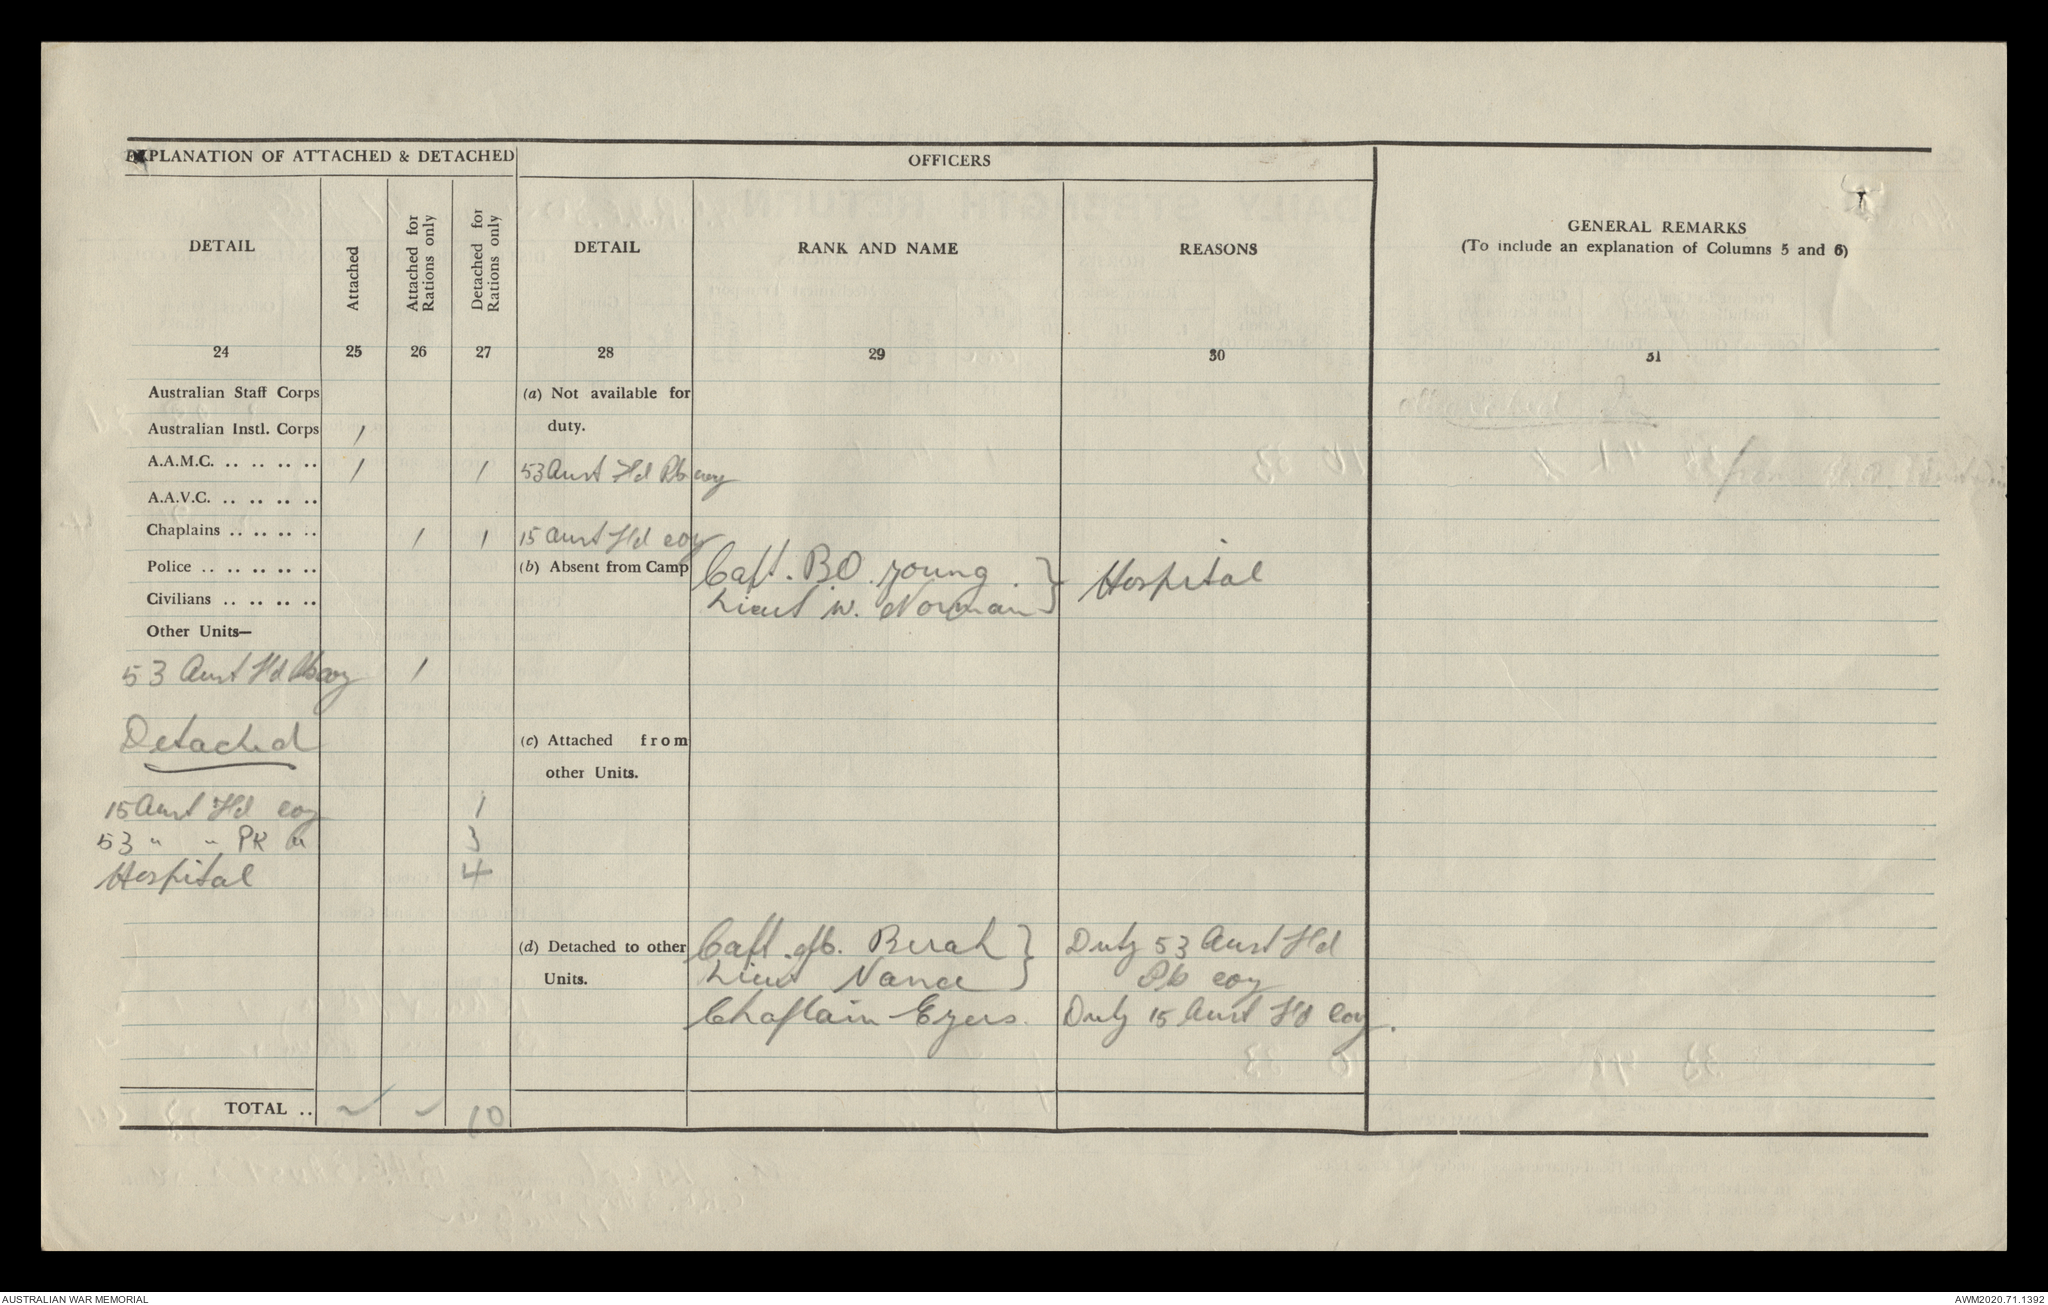 EXPLANATION OF ATTACHED & DETACHED
OFFICERS
DETAIL
Attached
Attached for Rations only
Detached for Rations only
DETAIL
RANK AND NAME
REASONS
GENERAL REMARKS
(To include an explanation of Columns 5 and 6)
24 25 26 27 28 29 30 31
Australian Staff Corps
(a) Not available for duty.
Australian Instl. Corps 1
A.A.M.C. .. .. .. .. 1 1 53 Aust Fd Pk coy
A.A.V.C. .. .. .. ..
Chaplains .. .. .. .. 1 1 15 Aust Fd coy
Police .. .. .. .. ..
(b) Absent from Camp
Capt. BO. Young. } Hospital
Lieut W. Norman }
Civilians .. .. .. ..
Other Units—
53 Aust Fd Pk coy 1
Detached
(c) Attached from other Units.
15 Aust Fd coy 1
53 " " PK " 3
Hospital 4
(d) Detached to other Units.
Capt. Berah } Duty 53 Aust Fd
Lieut Nance } Pk coy
Chaplain Eyers. Duty 15 Aust Fd Coy.
TOTAL .. 10
AUSTRALIAN WAR MEMORIAL
AWM2020.71.1392